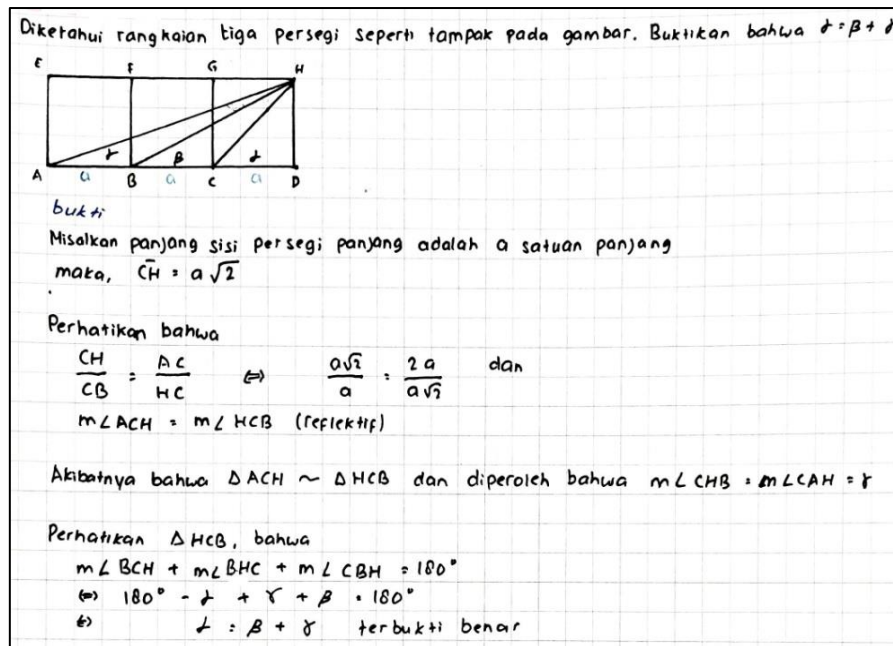 Diketahui rangkaian tiga persegi seperti tampak pada gambar. Buktikan bahwa α = β + γ
E F G H
γ β α
A a B a C a D
bukti
Misalkan panjang sisi persegi panjang adalah a satuan panjang
maka, C̄H̄ = a√2
Perhatikan bahwa
CH/CB = AC/HC ⇔ a√2/a = 2a/a√2 dan
m∠ACH = m∠HCB (reflektif)
Akibatnya bahwa ΔACH ~ ΔHCB dan diperoleh bahwa m∠CHB = m∠CAH = γ
Perhatikan ΔHCB, bahwa
m∠BCH + m∠BHC + m∠CBH = 180°
⇔ 180° - α + γ + β = 180°
⇔ α = β + γ terbukti benar